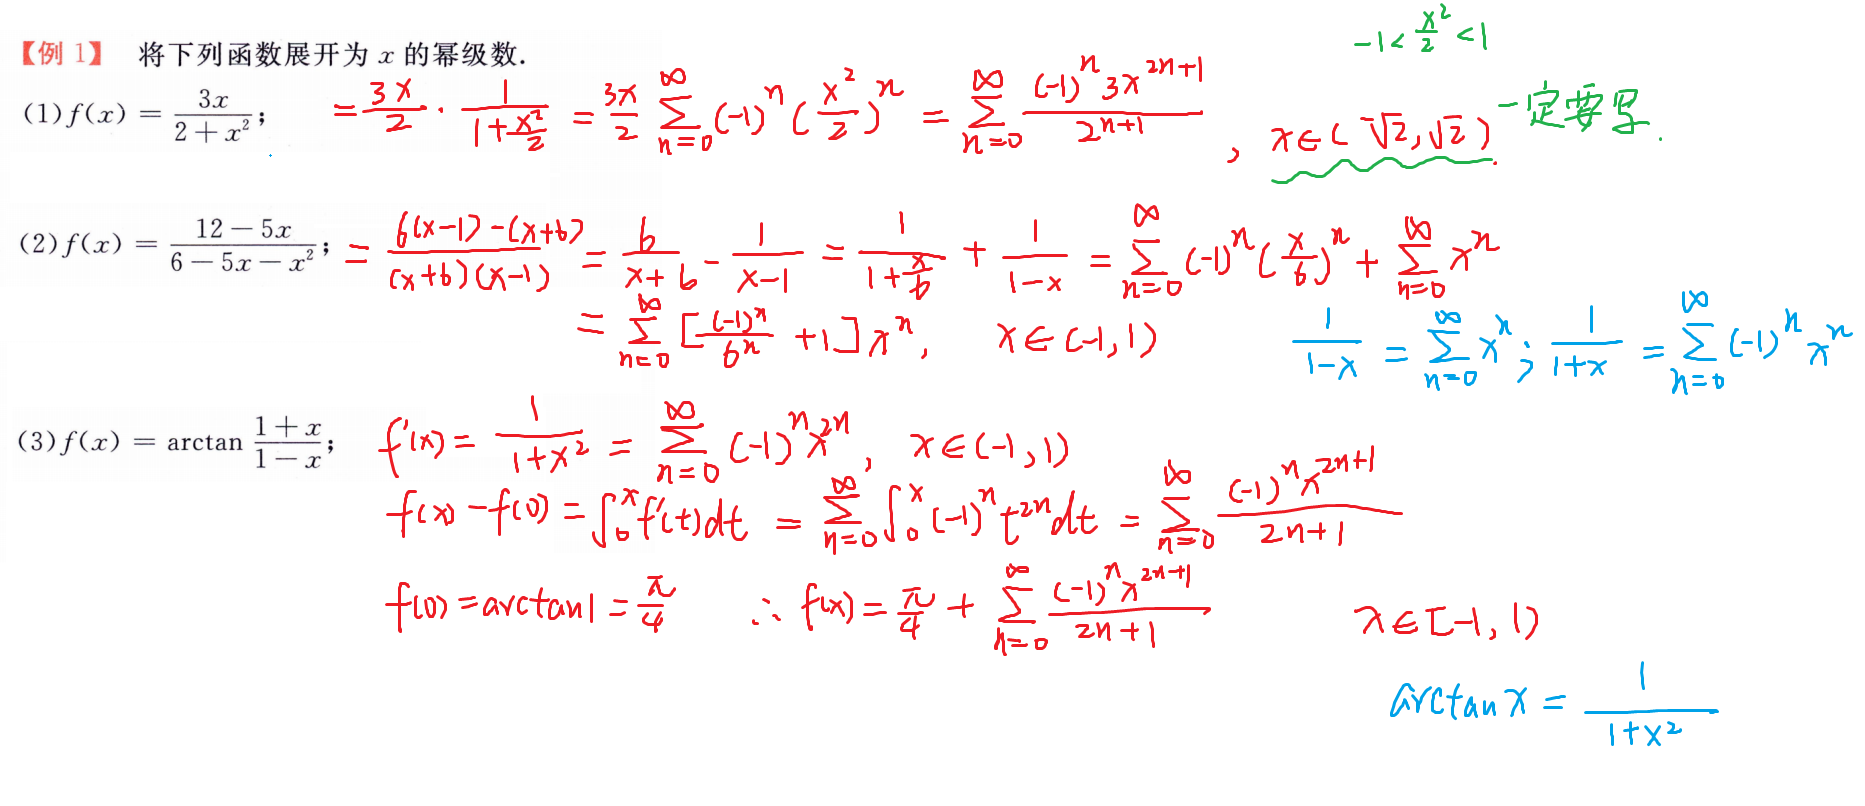 【例 1】 将下列函数展开为 x 的幂级数.
-1 < \frac{x^2}{2} < 1
(1) f(x) = \frac{3x}{2+x^2}; = \frac{3x}{2} \cdot \frac{1}{1+\frac{x^2}{2}} = \frac{3x}{2} \sum_{n=0}^{\infty} (-1)^n (\frac{x^2}{2})^n = \sum_{n=0}^{\infty} \frac{(-1)^n 3x^{2n+1}}{2^{n+1}}, x∈(-\sqrt{2}, \sqrt{2}). 一定要写.
(2) f(x) = \frac{12-5x}{6-5x-x^2}; = \frac{6(x-1)-(x+6)}{(x+6)(x-1)} = \frac{6}{x+6} - \frac{1}{x-1} = \frac{1}{1+\frac{x}{6}} + \frac{1}{1-x} = \sum_{n=0}^{\infty} (-1)^n (\frac{x}{6})^n + \sum_{n=0}^{\infty} x^n
= \sum_{n=0}^{\infty} [\frac{(-1)^n}{6^n} + 1] x^n, x∈(-1, 1)
\frac{1}{1-x} = \sum_{n=0}^{\infty} x^n; \frac{1}{1+x} = \sum_{n=0}^{\infty} (-1)^n x^n
(3) f(x) = arctan \frac{1+x}{1-x}; f'(x) = \frac{1}{1+x^2} = \sum_{n=0}^{\infty} (-1)^n x^{2n}, x∈(-1, 1)
f(x) - f(0) = \int_0^x f'(t)dt = \sum_{n=0}^{\infty} \int_0^x (-1)^n t^{2n} dt = \sum_{n=0}^{\infty} \frac{(-1)^n x^{2n+1}}{2n+1}
f(0) = arctan1 = \frac{π}{4} ∴ f(x) = \frac{π}{4} + \sum_{n=0}^{\infty} \frac{(-1)^n x^{2n+1}}{2n+1} x∈[-1, 1)
arctan x = \frac{1}{1+x^2}